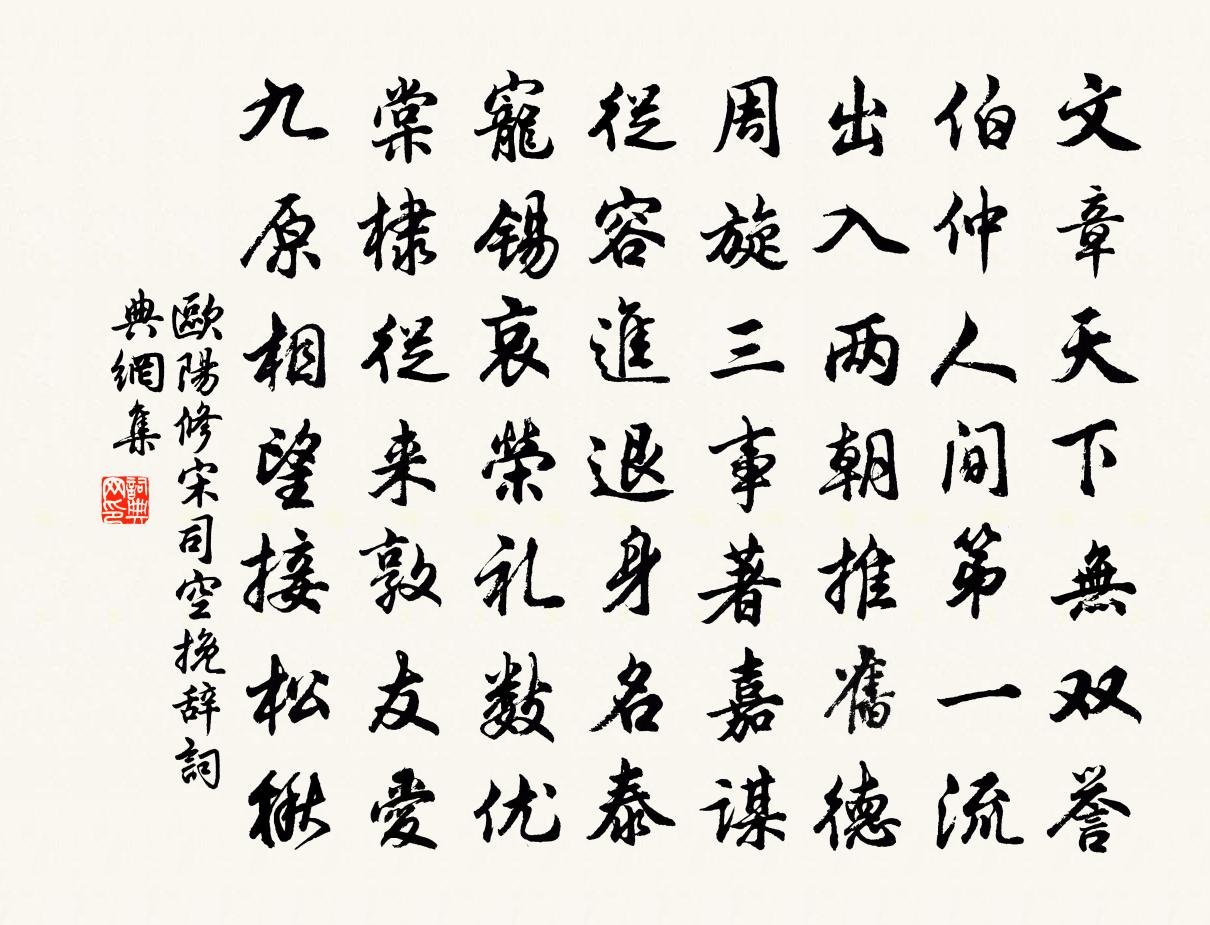 文章天下無双誉
伯仲人间第一流
出入两朝推舊德
周旋三事著嘉謀
從容進退身名泰
寵锡哀榮礼数优
棠棣從来敦友愛
九原相望接松楸
歐陽修宋司空挽辞詞
典網集
詞典
网印